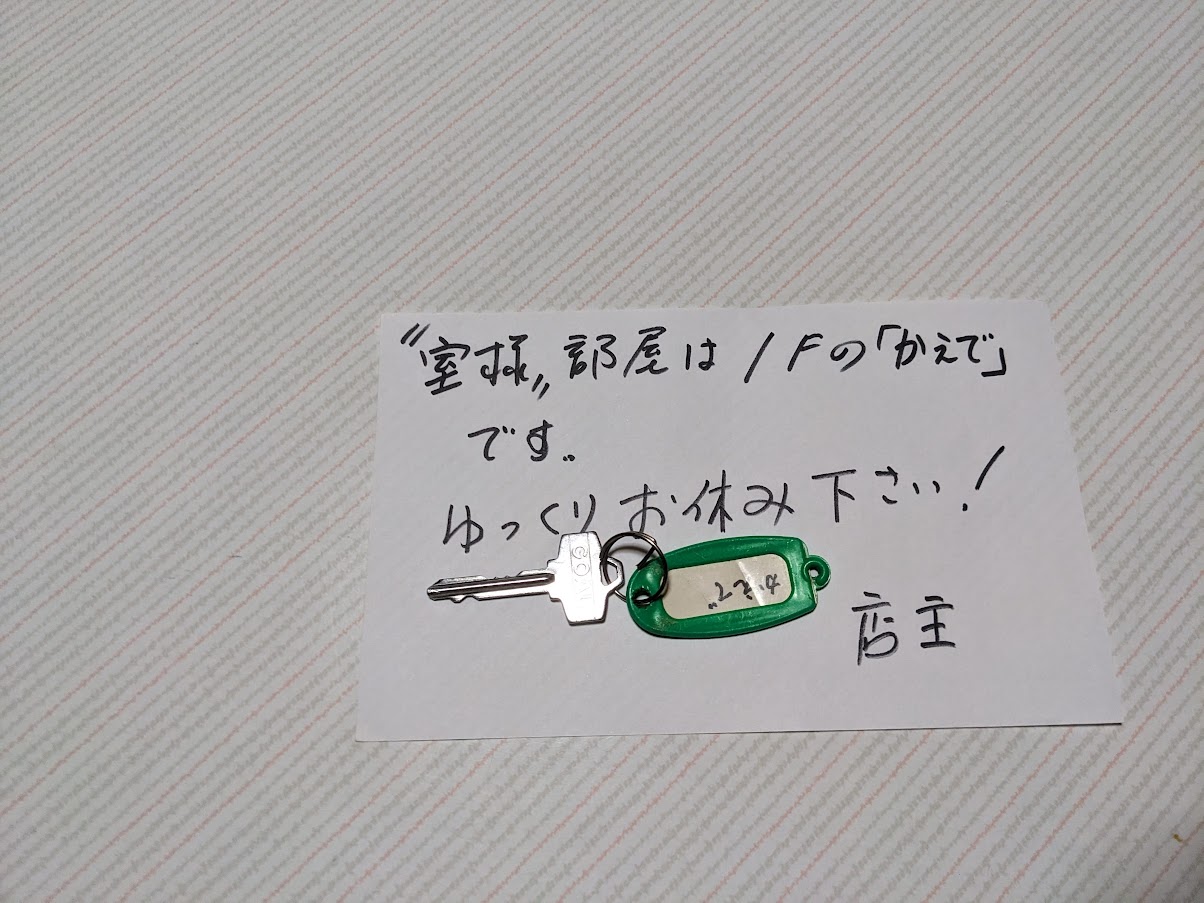 〝室様〟部屋は1Fの「かえで」
です。
ゆっくりお休み下さい!
店主
かえで